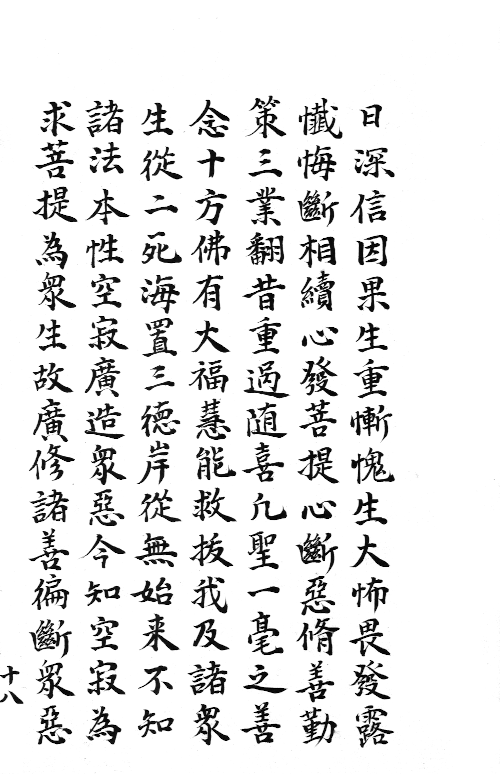 日深信因果生重慚愧生大怖畏發露
懺悔斷相續心發菩提心斷惡脩善勤
策三業翻昔重過随喜凡聖一毫之善
念十方佛有大福慧能救拔我及諸眾
生從二死海置三德岸從無始来不知
諸法本性空寂廣造眾惡今知空寂為
求菩提為眾生故廣修諸善徧斷眾惡
十八